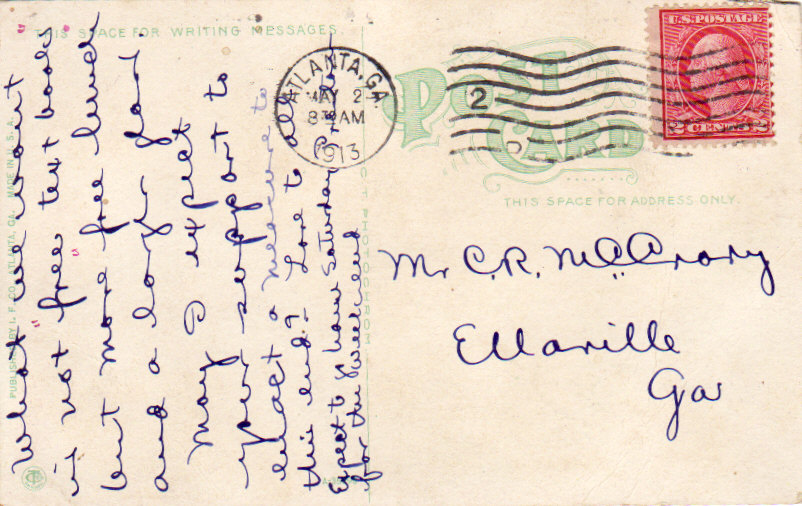 THIS SPACE FOR WRITING MESSAGES.
What we want
is not "free text books"
but more "free lunch"
and a longer
May I expect
your support to
enact a measure to
this end? Love to all
Expect to have Saturday
for the week end
PUBLISHED BY I. F. CO., ATLANTA, GA. MADE IN U.S.A.
ATLANTA, GA.
MAY 2
8 30 AM
1913
2
U.S. POSTAGE
2 CENTS 2
POST CARD
THIS SPACE FOR ADDRESS ONLY.
Mr C.R. McCrory
Ellaville
Ga